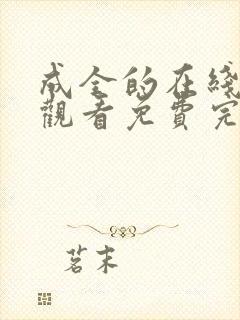 成全的在綫
觀看免費完
茗末